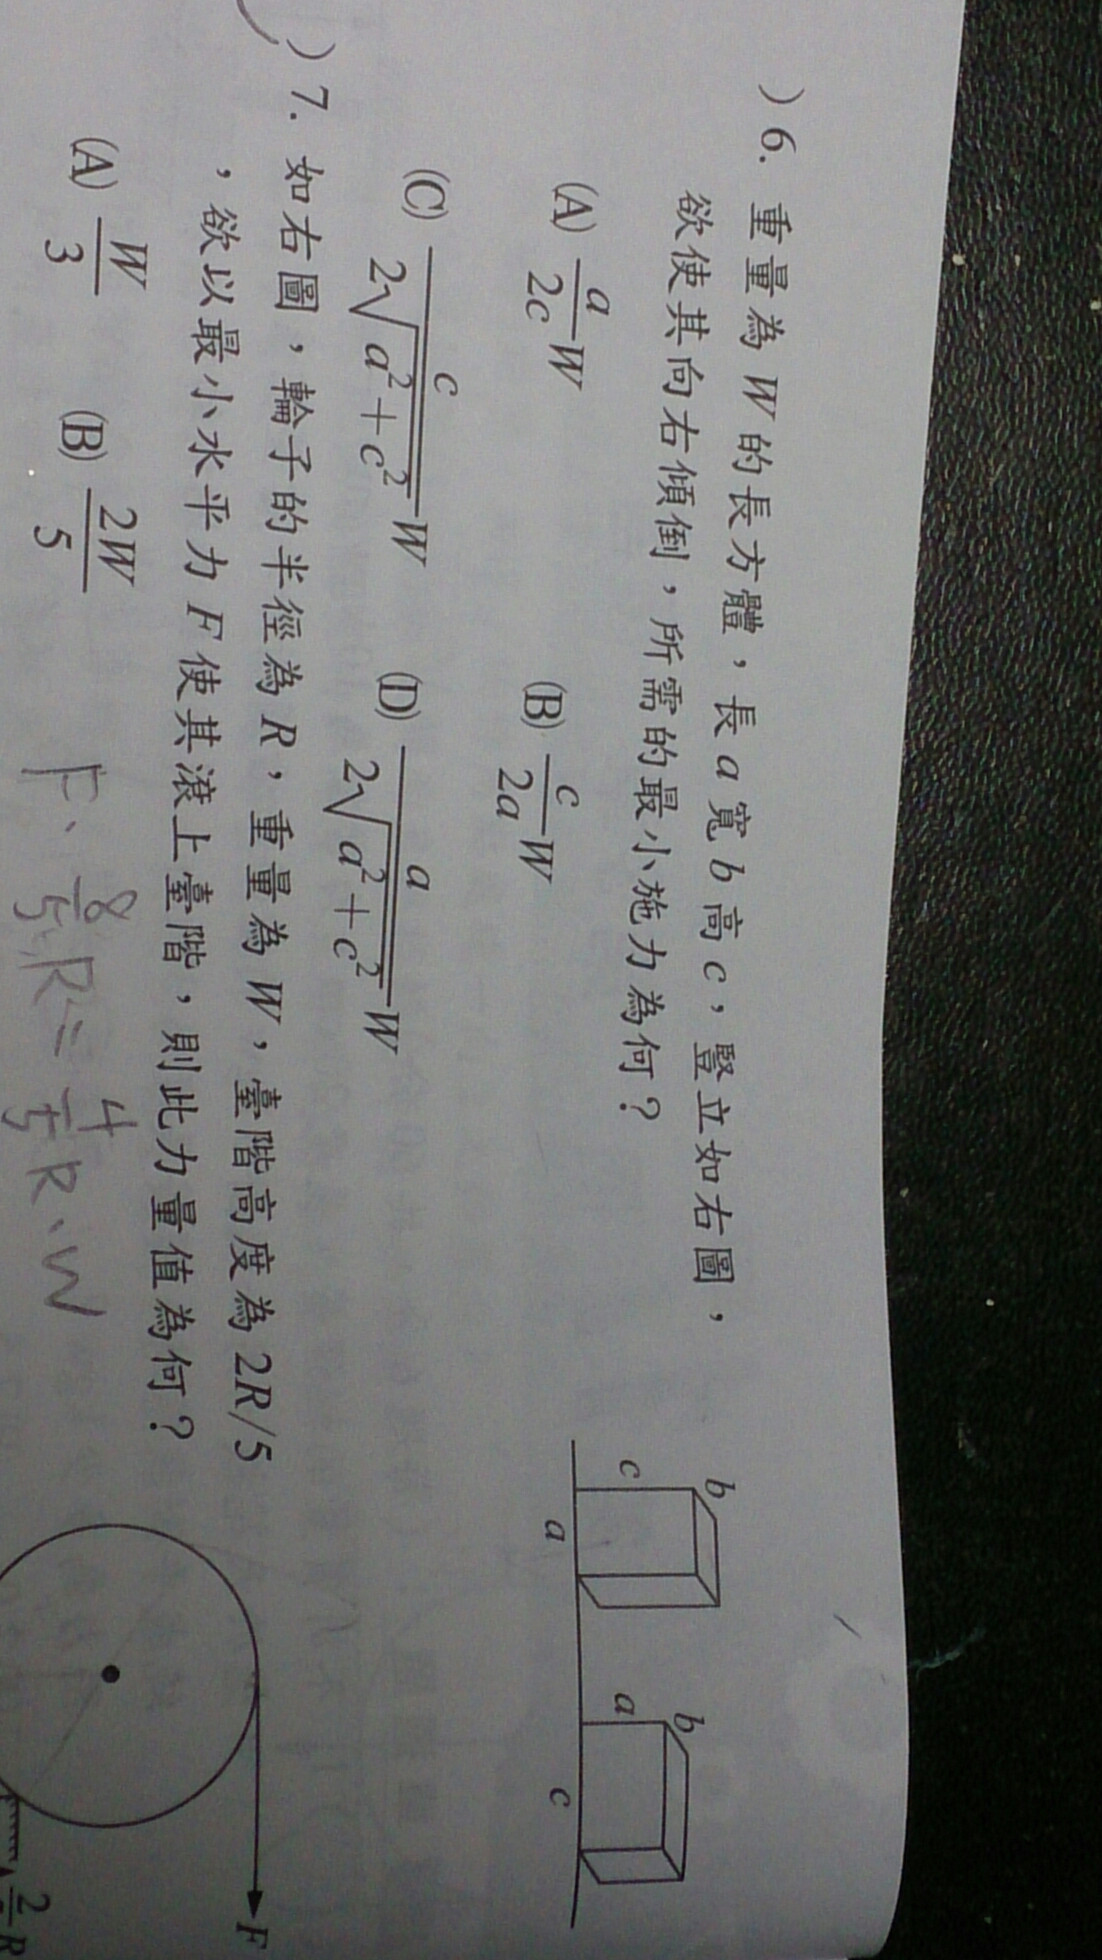 )6. 重量為 W 的長方體，長 a 寬 b 高 c，豎立如右圖，
欲使其向右傾倒，所需的最小施力為何？
(A) a/2c W (B) c/2a W
(C) c/2√(a²+c²) W (D) a/2√(a²+c²) W
b
c
a
b
a
c
)7. 如右圖，輪子的半徑為 R，重量為 W，臺階高度為 2R/5
，欲以最小水平力 F 使其滾上臺階，則此力量值為何？
(A) W/3 (B) 2W/5
F
F · 8/5 R = 4/5 R · W